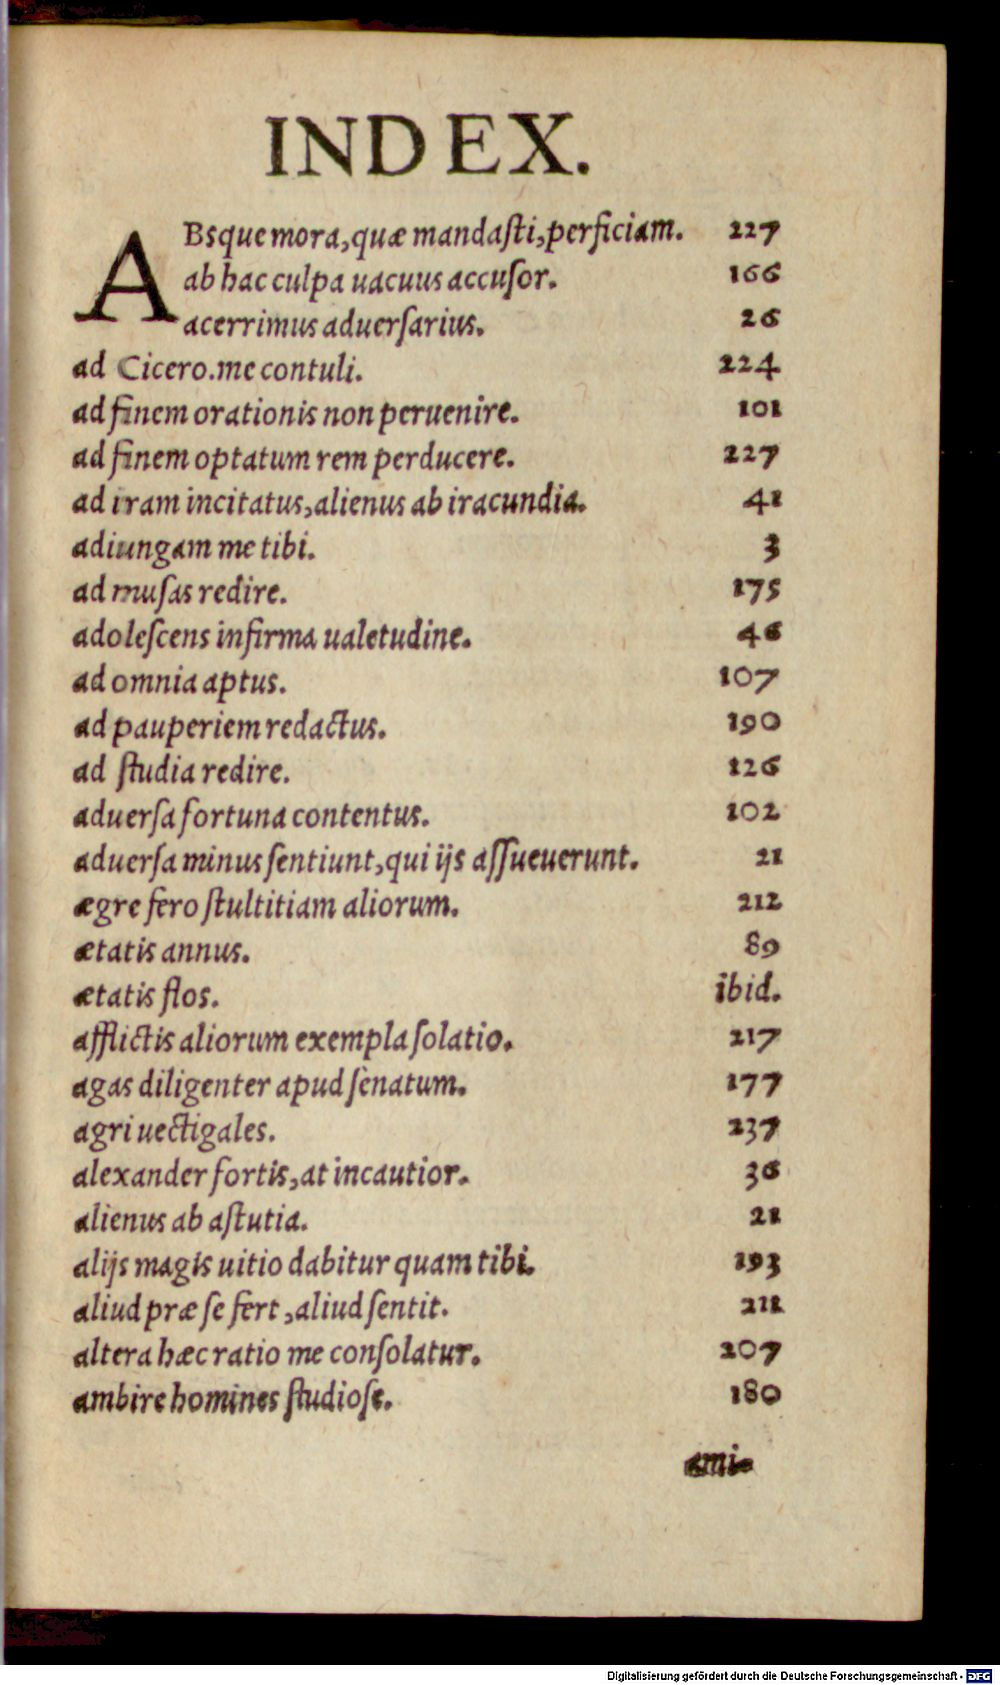 INDEX.
ABsque mora, quæ mandaſti, perficiam. 227
ab hac culpa uacuus accuſor. 166
acerrimus aduerſarius. 26
ad Cicero. me contuli. 224
ad finem orationis non peruenire. 101
ad finem optatum rem perducere. 227
ad iram incitatus, alienus ab iracundia. 41
adiungam me tibi. 3
ad muſas redire. 175
adoleſcens infirma ualetudine. 46
ad omnia aptus. 107
ad pauperiem redactus. 190
ad ſtudia redire. 126
aduerſa fortuna contentus. 102
aduerſa minus ſentiunt, qui ijs aſſueuerunt. 21
ægre fero ſtultitiam aliorum. 212
ætatis annus. 89
ætatis flos. ibid.
afflictis aliorum exempla ſolatio. 217
agas diligenter apud ſenatum. 177
agri uectigales. 237
alexander fortis, at incautior. 36
alienus ab aſtutia. 21
alijs magis uitio dabitur quam tibi. 193
aliud præ ſe fert, aliud ſentit. 211
altera hæc ratio me conſolatur. 207
ambire homines ſtudioſe. 180
ami-
Digitalisierung gefördert durch die Deutsche Forschungsgemeinschaft - DFG